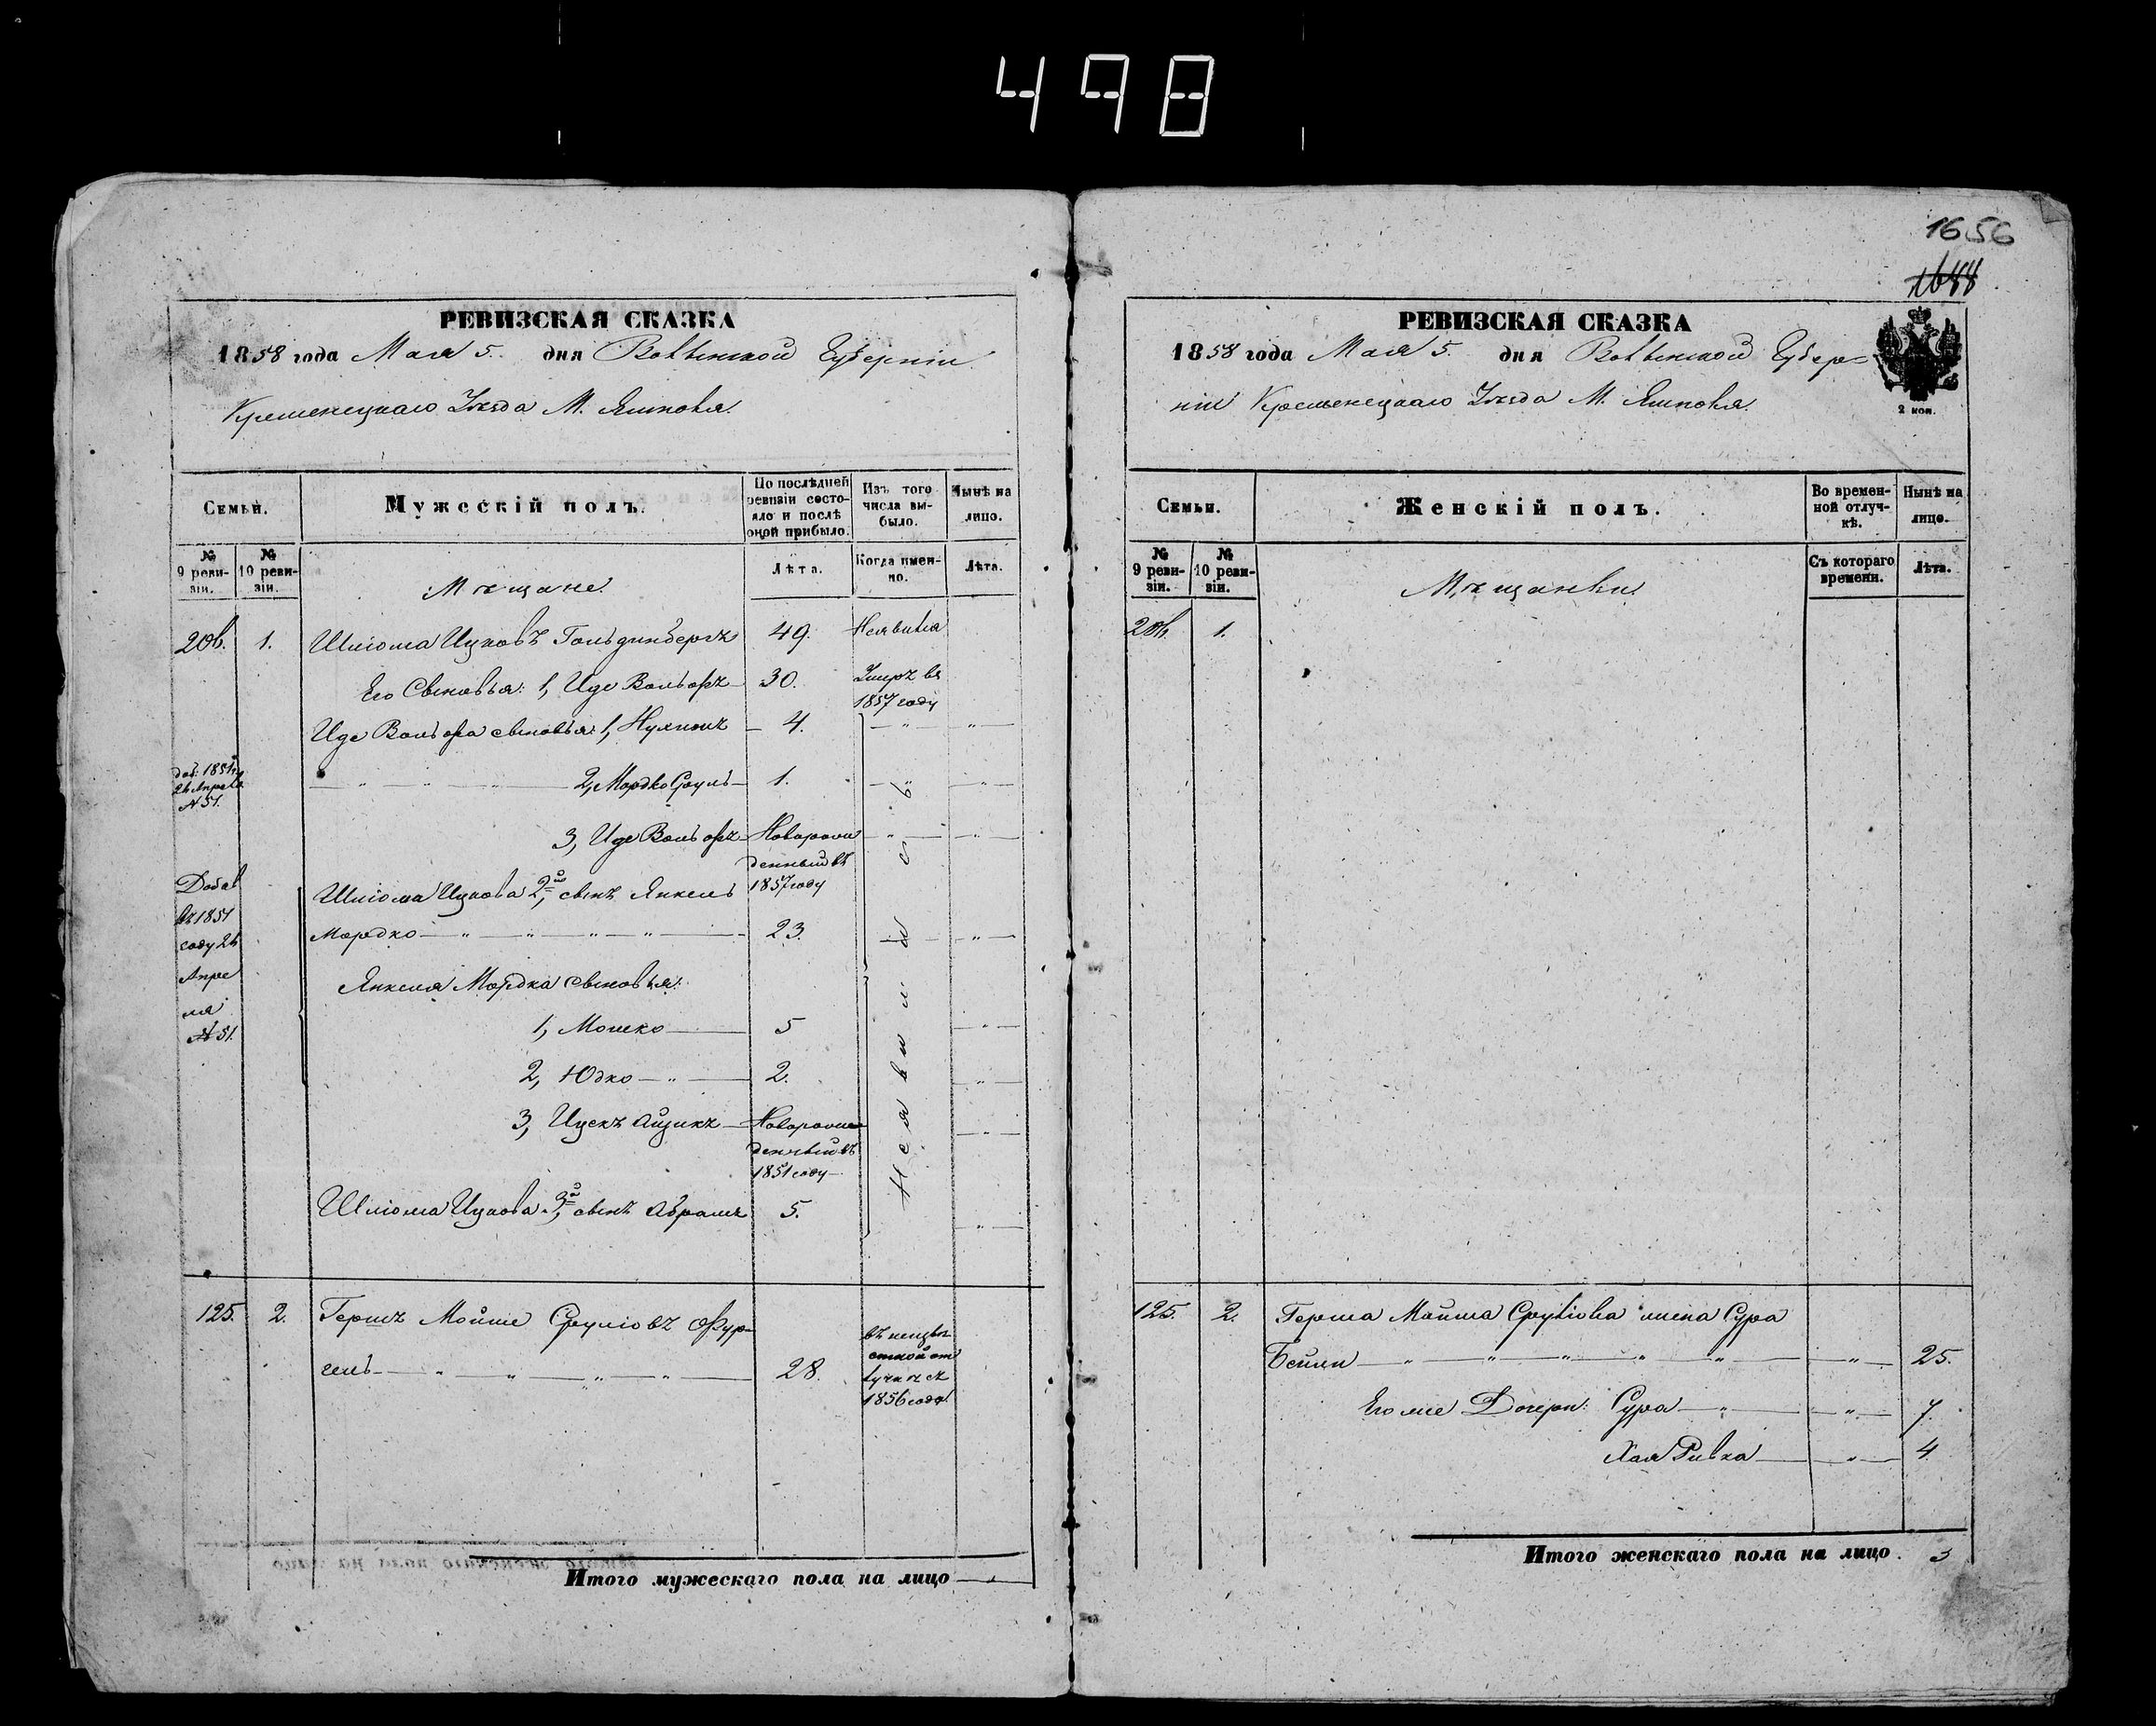 498
1656
1644
РЕВИЗСКАЯ СКАЗКА
1858 года Мая 5. дня Волынской Губернiи
Кременецкаго Уѣзда М. Ямполя.
Семьи.
Мужескiй полъ.
По послѣдней ревизiи состояло и послѣ оной прибыло.
Изъ того числа выбыло.
Нынѣ на лицо.
№ 9 ревизiи.
№ 10 ревизiи.
Мѣщане.
Лѣта.
Когда именно.
Лѣта.
20в. 1. Шліома Ицковъ Гольдинбергъ 49. Неявился
Его Сыновья: 1, Иде Вольфъ 30. Умеръ въ
1857 году
Иде Вольфа сыновья: 1, Нухимъ 4. " "
доб: 1851 г.
24 Апреля
№ 51.
" " " 2, Мордко Сруль 1. " "
3, Иде Вольфъ Новорож
денный въ
1857 году
" "
Добав
въ 1851
году 24
Апре
ля
№ 51.
Шліома Ицкова 2й, сынъ Янкель
Мордко " " " " 23. "
Янкеля Мордка сыновья:
1, Мошко 5 "
2, Юдко " 2. "
3, Ицекъ Айзикъ Новорож
денный въ
1851 году
"
Шліома Ицкова 3й, сынъ Абрамъ 5. "
Неявились
125. 2. Гершъ Мойше Сруліовъ Фур-
гель " " " " 28.
въ неизвѣ
стной от
лучкѣ съ
1856 года
Итого мужескаго пола на лицо "
РЕВИЗСКАЯ СКАЗКА
1858 года Мая 5. дня Волынской Губер=
нiи Кременецкаго Уѣзда М. Ямполя.
2 коп.
Семьи.
Женскiй полъ.
Во временной отлучкѣ.
Нынѣ на лицо.
№ 9 ревизiи.
№ 10 ревизiи.
Мѣщанки
Съ котораго времени.
Лѣта.
20в. 1.
125. 2. Герша Мойша Сруліова жена Сура
Бейли " " " " " " 25.
Его же Дочери: Сура " " 7.
Хая Ривка " 4.
Итого женскаго пола на лицо . 3